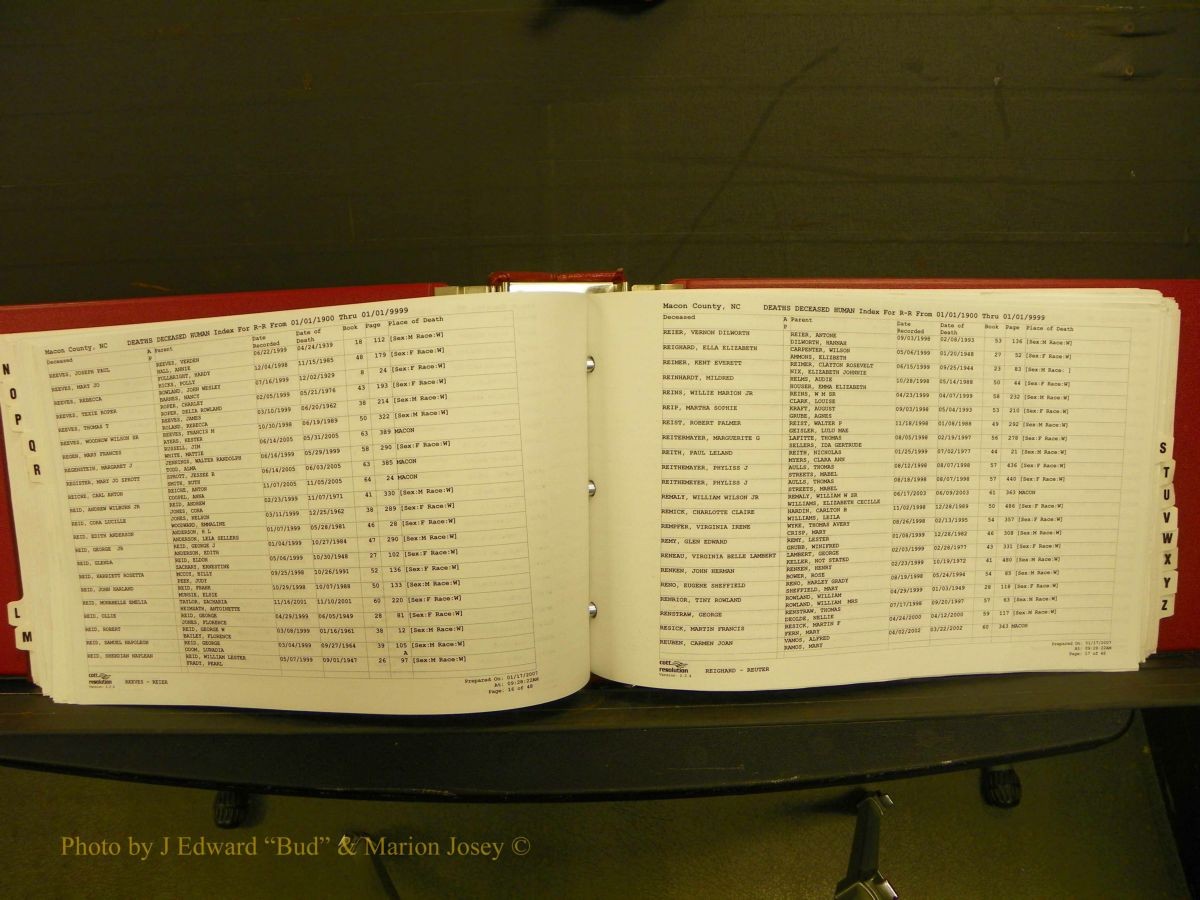 N
O
P
Q
R
L
M
Macon County, NC DEATHS DECEASED HUMAN Index For R-R From 01/01/1900 Thru 01/01/9999
Deceased A Parent Date Recorded Date of Death Book Page Place of Death
P
REEVES, JOSEPH PAUL REEVES, VERDEN 06/22/1999 04/24/1939 18 112 [Sex:M Race:W]
HALL, ANNIE
REEVES, MARY JO FULLBRIGHT, HARDY 12/04/1998 11/15/1985 48 179 [Sex:F Race:W]
HICKS, POLLY
REEVES, REBECCA ROWLAND, JOHN WESLEY 07/16/1999 12/02/1929 8 24 [Sex:F Race:W]
BARNES, NANCY
REEVES, TEXIE ROPER ROPER, CHARLEY 02/05/1999 05/21/1976 43 193 [Sex:F Race:W]
ROPER, DELLA ROWLAND
REEVES, THOMAS T REEVES, JAMES 03/10/1999 06/20/1962 38 214 [Sex:M Race:W]
ROLAND, REBECCA
REEVES, WOODROW WILSON SR REEVES, FRANCIS M 10/30/1998 06/19/1989 50 322 [Sex:M Race:W]
AYERS, HESTER
REGEN, MARY FRANCES RUSSELL, JIM 06/14/2005 05/31/2005 63 389 MACON
WHITE, MATTIE
REGENSTEIN, MARGARET J JENNINGS, WALTER RANDOLPH 06/16/1999 05/29/1999 58 290 [Sex:F Race:W]
TODD, ALMA
REGISTER, MARY JO SPROTT SPROTT, JESSEE R 06/14/2005 06/03/2005 63 385 MACON
SMITH, RUTH
REICHE, CARL ANTON REICHE, ANTON 11/07/2005 11/05/2005 64 24 MACON
COOPEL, ANNA
REID, ANDREW WILBURN JR REID, ANDREW 02/23/1999 11/07/1971 41 330 [Sex:M Race:W]
JONES, CORA
REID, CORA LUCILLE JONES, NELSON 03/11/1999 12/25/1962 38 289 [Sex:F Race:W]
WOODWARD, EMMALINE
REID, EDITH ANDERSON ANDERSON, H L 01/07/1999 05/28/1981 46 28 [Sex:F Race:W]
ANDERSON, LELA SELLERS
REID, GEORGE JR REID, GEORGE J 01/04/1999 10/27/1984 47 290 [Sex:M Race:W]
ANDERSON, EDITH
REID, GLENDA REID, ELDON 05/06/1999 10/30/1948 27 102 [Sex:F Race:W]
ZACHARY, ERNESTINE
REID, HARRIETT ROSETTA MCCOY, BILLY 09/25/1998 10/26/1991 52 136 [Sex:F Race:W]
PEEK, JUDY
REID, JOHN HARLAND REID, FRANK 10/29/1998 10/07/1988 50 133 [Sex:M Race:W]
MUNSIE, ELSIE
REID, MURRBELLE EMELIA TAYLOR, ZACHARIA 11/16/2001 11/10/2001 60 220 [Sex:F Race:W]
HEIMRATH, ANTOINETTE
REID, OLLIE REID, GEORGE 04/29/1999 06/05/1949 28 81 [Sex:F Race:W]
JONES, FLORENCE
REID, ROBERT REID, GEORGE W 03/08/1999 01/16/1961 38 12 [Sex:M Race:W]
BAILEY, FLORENCE
REID, SAMUEL NAPOLEON REID, GEORGE 03/04/1999 09/27/1964 39 105 [Sex:M Race:W]
ODOM, LURADIA A
REID, SHERDIAN NAPLEAN REID, WILLIAM LESTER 05/07/1999 09/01/1947 26 97 [Sex:M Race:W]
FRADY, PEARL
cott
resolution
Version: 2.2.4
REEVES - REIER
Prepared On: 01/17/2007
At: 09:28:22AM
Page: 16 of 48
Macon County, NC DEATHS DECEASED HUMAN Index For R-R From 01/01/1900 Thru 01/01/9999
Deceased A Parent Date Recorded Date of Death Book Page Place of Death
P
REIER, VERNON DILWORTH REIER, ANTONE 09/03/1998 02/08/1993 53 136 [Sex:M Race:W]
DILWORTH, HANNAH
REIGHARD, ELLA ELIZABETH CARPENTER, WILSON 05/06/1999 01/20/1948 27 52 [Sex:F Race:W]
AMMONS, ELIZBETH
REIMER, KENT EVERETT REIMER, CLAYTON ROSEVELT 06/15/1999 09/25/1944 23 83 [Sex:M Race: ]
NIX, ELIZABETH JOHNNIE
REINHARDT, MILDRED HELMS, AUDIE 10/28/1998 05/14/1988 50 44 [Sex:F Race:W]
HOUSER, EMMA ELIZABETH
REINS, WILLIE MARION JR REINS, W M SR 04/23/1999 04/07/1999 58 232 [Sex:M Race:W]
CLARK, LOUISE
REIP, MARTHA SOPHIE KRAFT, AUGUST 09/03/1998 05/04/1993 53 210 [Sex:F Race:W]
GRUBE, AGNES
REIST, ROBERT PALMER REIST, WALTER P 11/18/1998 01/08/1988 49 292 [Sex:M Race:W]
GEISLER, LULU MAE
REITERMAYER, MARGUERITE G LAFITTE, THOMAS 08/05/1998 02/19/1997 56 278 [Sex:F Race:W]
SELLERS, IDA GERTRUDE
REITH, PAUL LELAND REITH, NICHOLAS 01/25/1999 07/02/1977 44 21 [Sex:M Race:W]
MYERS, CLARA ANN
REITHEMAYER, PHYLISS J AULLS, THOMAS 08/12/1998 08/07/1998 57 436 [Sex:F Race:W]
STREETS, MABEL
REITHEMAYER, PHYLISS J AULLS, THOMAS 08/18/1998 08/07/1998 57 440 [Sex:F Race:W]
STREETS, MABEL
REMALY, WILLIAM WILSON JR REMALY, WILLIAM W SR 06/17/2003 06/09/2003 61 363 MACON
WILLIAMS, ELIZABETH CECILLE
REMICK, CHARLOTTE CLAIRE HARDIN, CARLTON B 11/02/1998 12/28/1989 50 486 [Sex:F Race:W]
WILLIAMS, LEILA
REMPFER, VIRGINIA IRENE WYKE, THOMAS AVERY 08/26/1998 02/13/1995 54 357 [Sex:F Race:W]
CRISP, MARY
REMY, GLEN EDWARD REMY, LESTER 01/08/1999 12/28/1982 46 308 [Sex:M Race:W]
GRUBB, WINIFRED
RENEAU, VIRGINIA BELLE LAMBERT LAMBERT, GEORGE 02/03/1999 02/28/1977 43 331 [Sex:F Race:W]
KELLER, NOT STATED
RENKEN, JOHN HERMAN RENKEN, HENRY 02/23/1999 10/19/1972 41 480 [Sex:M Race:W]
BOWER, ROSE
RENO, EUGENE SHEFFIELD RENO, HARLEY GRADY 08/19/1998 05/24/1994 54 85 [Sex:M Race:W]
SHEFFIELD, MARY
RENRIOR, TINY ROWLAND ROWLAND, WILLIAM 04/29/1999 01/03/1949 28 118 [Sex:F Race:W]
ROWLAND, WILLIAM MRS
RENSTRAW, GEORGE RENSTRAW, THOMAS 07/17/1998 09/20/1997 57 63 [Sex:M Race:W]
DEOLDE, NELLIE
RESICK, MARTIN FRANCIS RESICK, MARTIN F 04/24/2000 04/12/2000 59 117 [Sex:M Race:W]
FERN, MARY
REUBEN, CARMEN JOAN VAMOS, ALFRED 04/02/2002 03/22/2002 60 343 MACON
RAMOS, MARY
cott
resolution
Version: 2.2.4
REIGHARD - REUTER
Prepared On: 01/17/2007
At: 09:28:22AM
Page: 17 of 48
S
T
U
V
W
X
Y
Z
Photo by J Edward “Bud” & Marion Josey ©